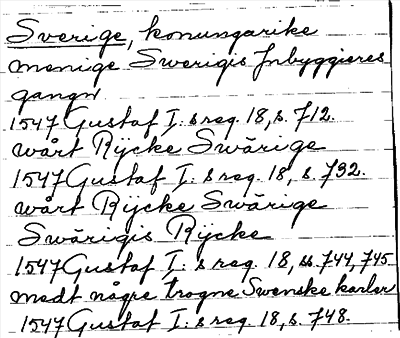 Sverige, konungarike
menige Swerigis Jnbyggieres
gangn
1547 Gustaf I: s reg. 18, s. 712.
wårt Rijcke Swärige
1547 Gustaf I: s reg. 18, s. 732.
wårt Rijcke Swärige
Swärigis Rijcke
1547 Gustaf I: s reg. 18, ss. 744, 745
medt någre trogne Swenske karler
1547 Gustaf I: s reg. 18, s. 748.